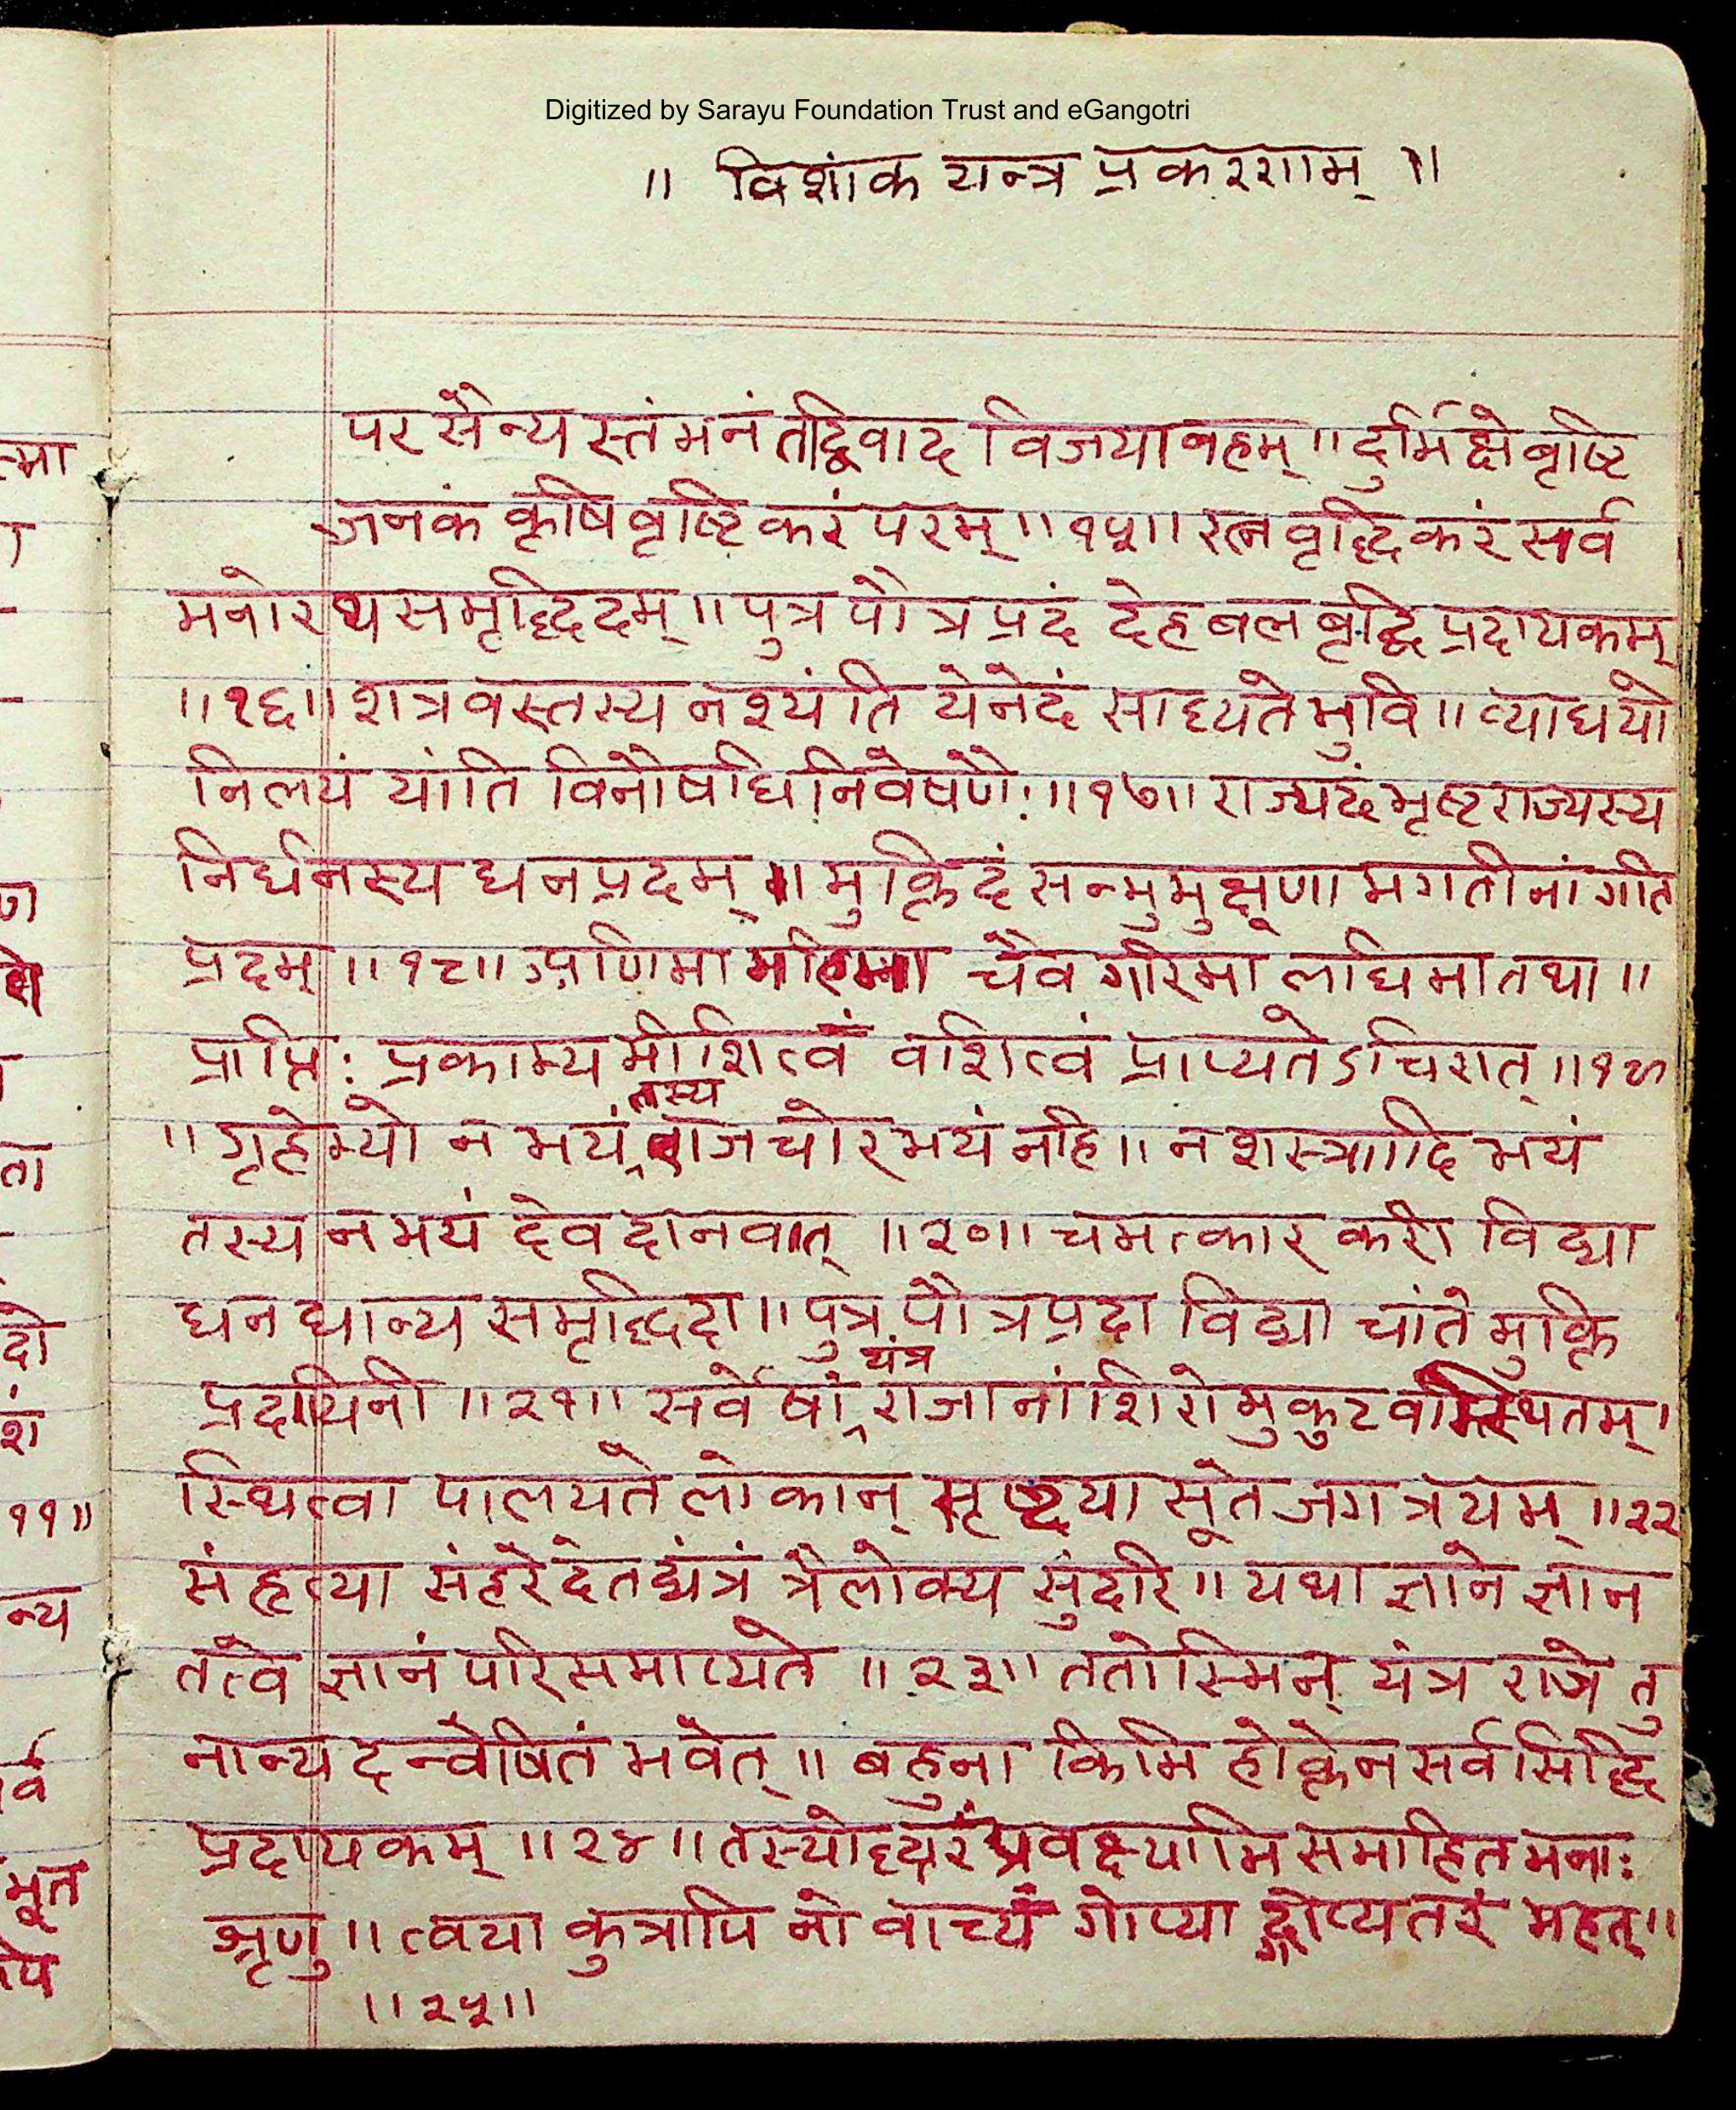 Digitized by Sarayu Foundation Trust and eGangotri
॥ विशांक यन्त्र प्रकरणम् ॥
पर सैन्य स्तंभनं तद्विवाद विजयावहम् ॥ दुर्भिक्षे वृष्टि
जनकं कृषि वृष्टि करं परम् ॥ १५॥ रत्न वृद्धि करं सर्व
मनोरथ समृद्धिदम् ॥ पुत्र पौत्र प्रदं देह बल वृद्धि प्रदायकम्
॥१६॥ शत्रवस्तस्य नश्यंति येनेदं साध्यते भुवि ॥ व्याधयो
निलयं यांति विनौषधि निवेषणैः ॥१७॥ राज्यदं भृष्ट राज्यस्य
निर्धनस्य धन प्रदम् ॥ मुक्तिदं सन्मुमुक्षूणा मगतीनां गति
प्रदम् ॥१८॥ अणिमा महिमा चैव गरिमा लघिमा तथा ॥
प्राप्तिः प्रकाम्य मीशित्वं वशित्वं प्राप्यतेऽचिरात् ॥१९
॥ गृहेभ्यो न भयं तस्य राज चोर भयं नहि ॥ न शस्त्रादि भयं
तस्य न भयं देव दानवात् ॥२०॥ चमत्कार करी विद्या
धन धान्य समृद्धिदा ॥ पुत्र पौत्र प्रदा विद्या चांते मुक्ति
प्रदायिनी ॥२१॥ सर्वेषां यंत्र राजानां शिरो मुकुट वत्स्थितम् ।
स्थित्वा पालयते लोकान् सृष्ट्या सूते जगत्रयम् ॥२२
संहृत्या संहरेदेतद्यंत्रं त्रैलोक्य सुंदरि ॥ यथा ज्ञाने ज्ञान
तत्वे ज्ञानं परिसमाप्यते ॥२३॥ ततोस्मिन् यंत्र राजे तु
नान्यदन्वेषितं भवेत् ॥ बहुना किमि होक्तेन सर्व सिद्धि
प्रदायकम् ॥२४॥ तस्योद्धारं प्रवक्ष्यामि समाहित मनाः
श्रृणु ॥ त्वया कुत्रापि नो वाच्यं गोप्या द्गोप्यतरं महत् ॥
॥२५॥